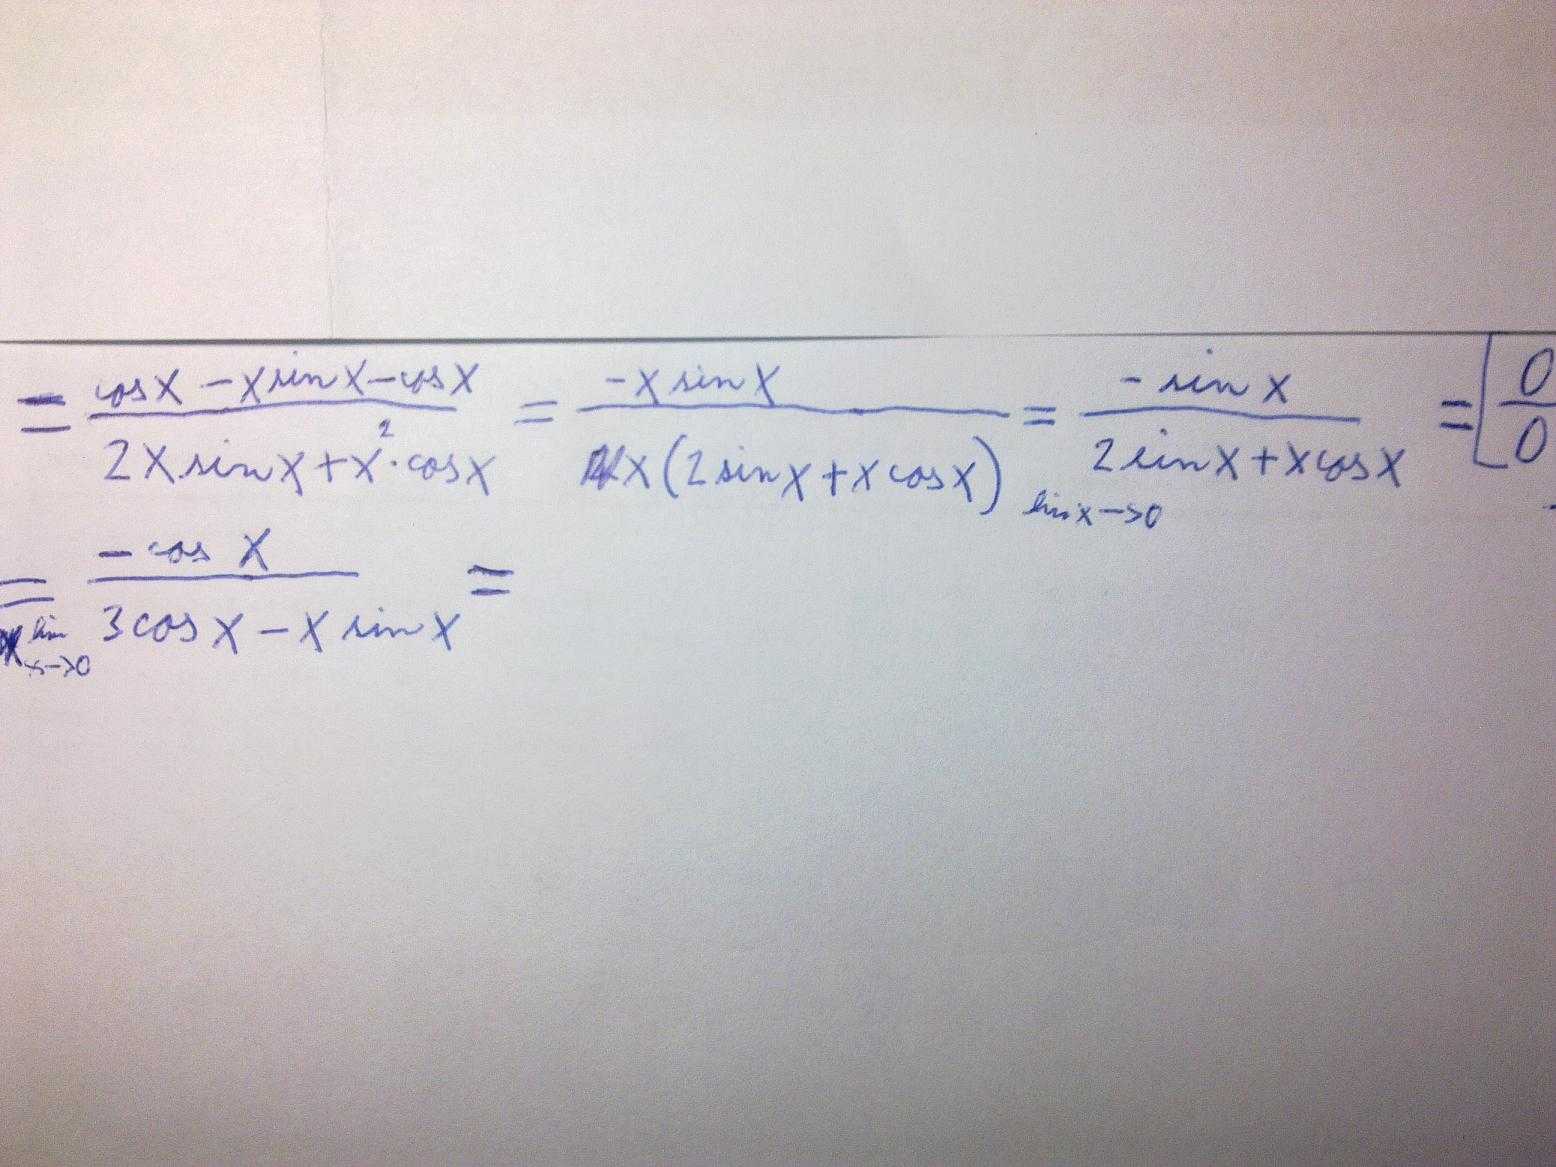 = \frac{cosx - x sinx - cosx}{2x sinx + x^2 · cosx} = \frac{-x sinx}{x(2 sinx + x cosx)} =_{lim x->0} \frac{- sin x}{2 sinx + x cosx} = [\frac{0}{0}
=_{lim x->0} \frac{- cos x}{3 cos x - x sin x} =